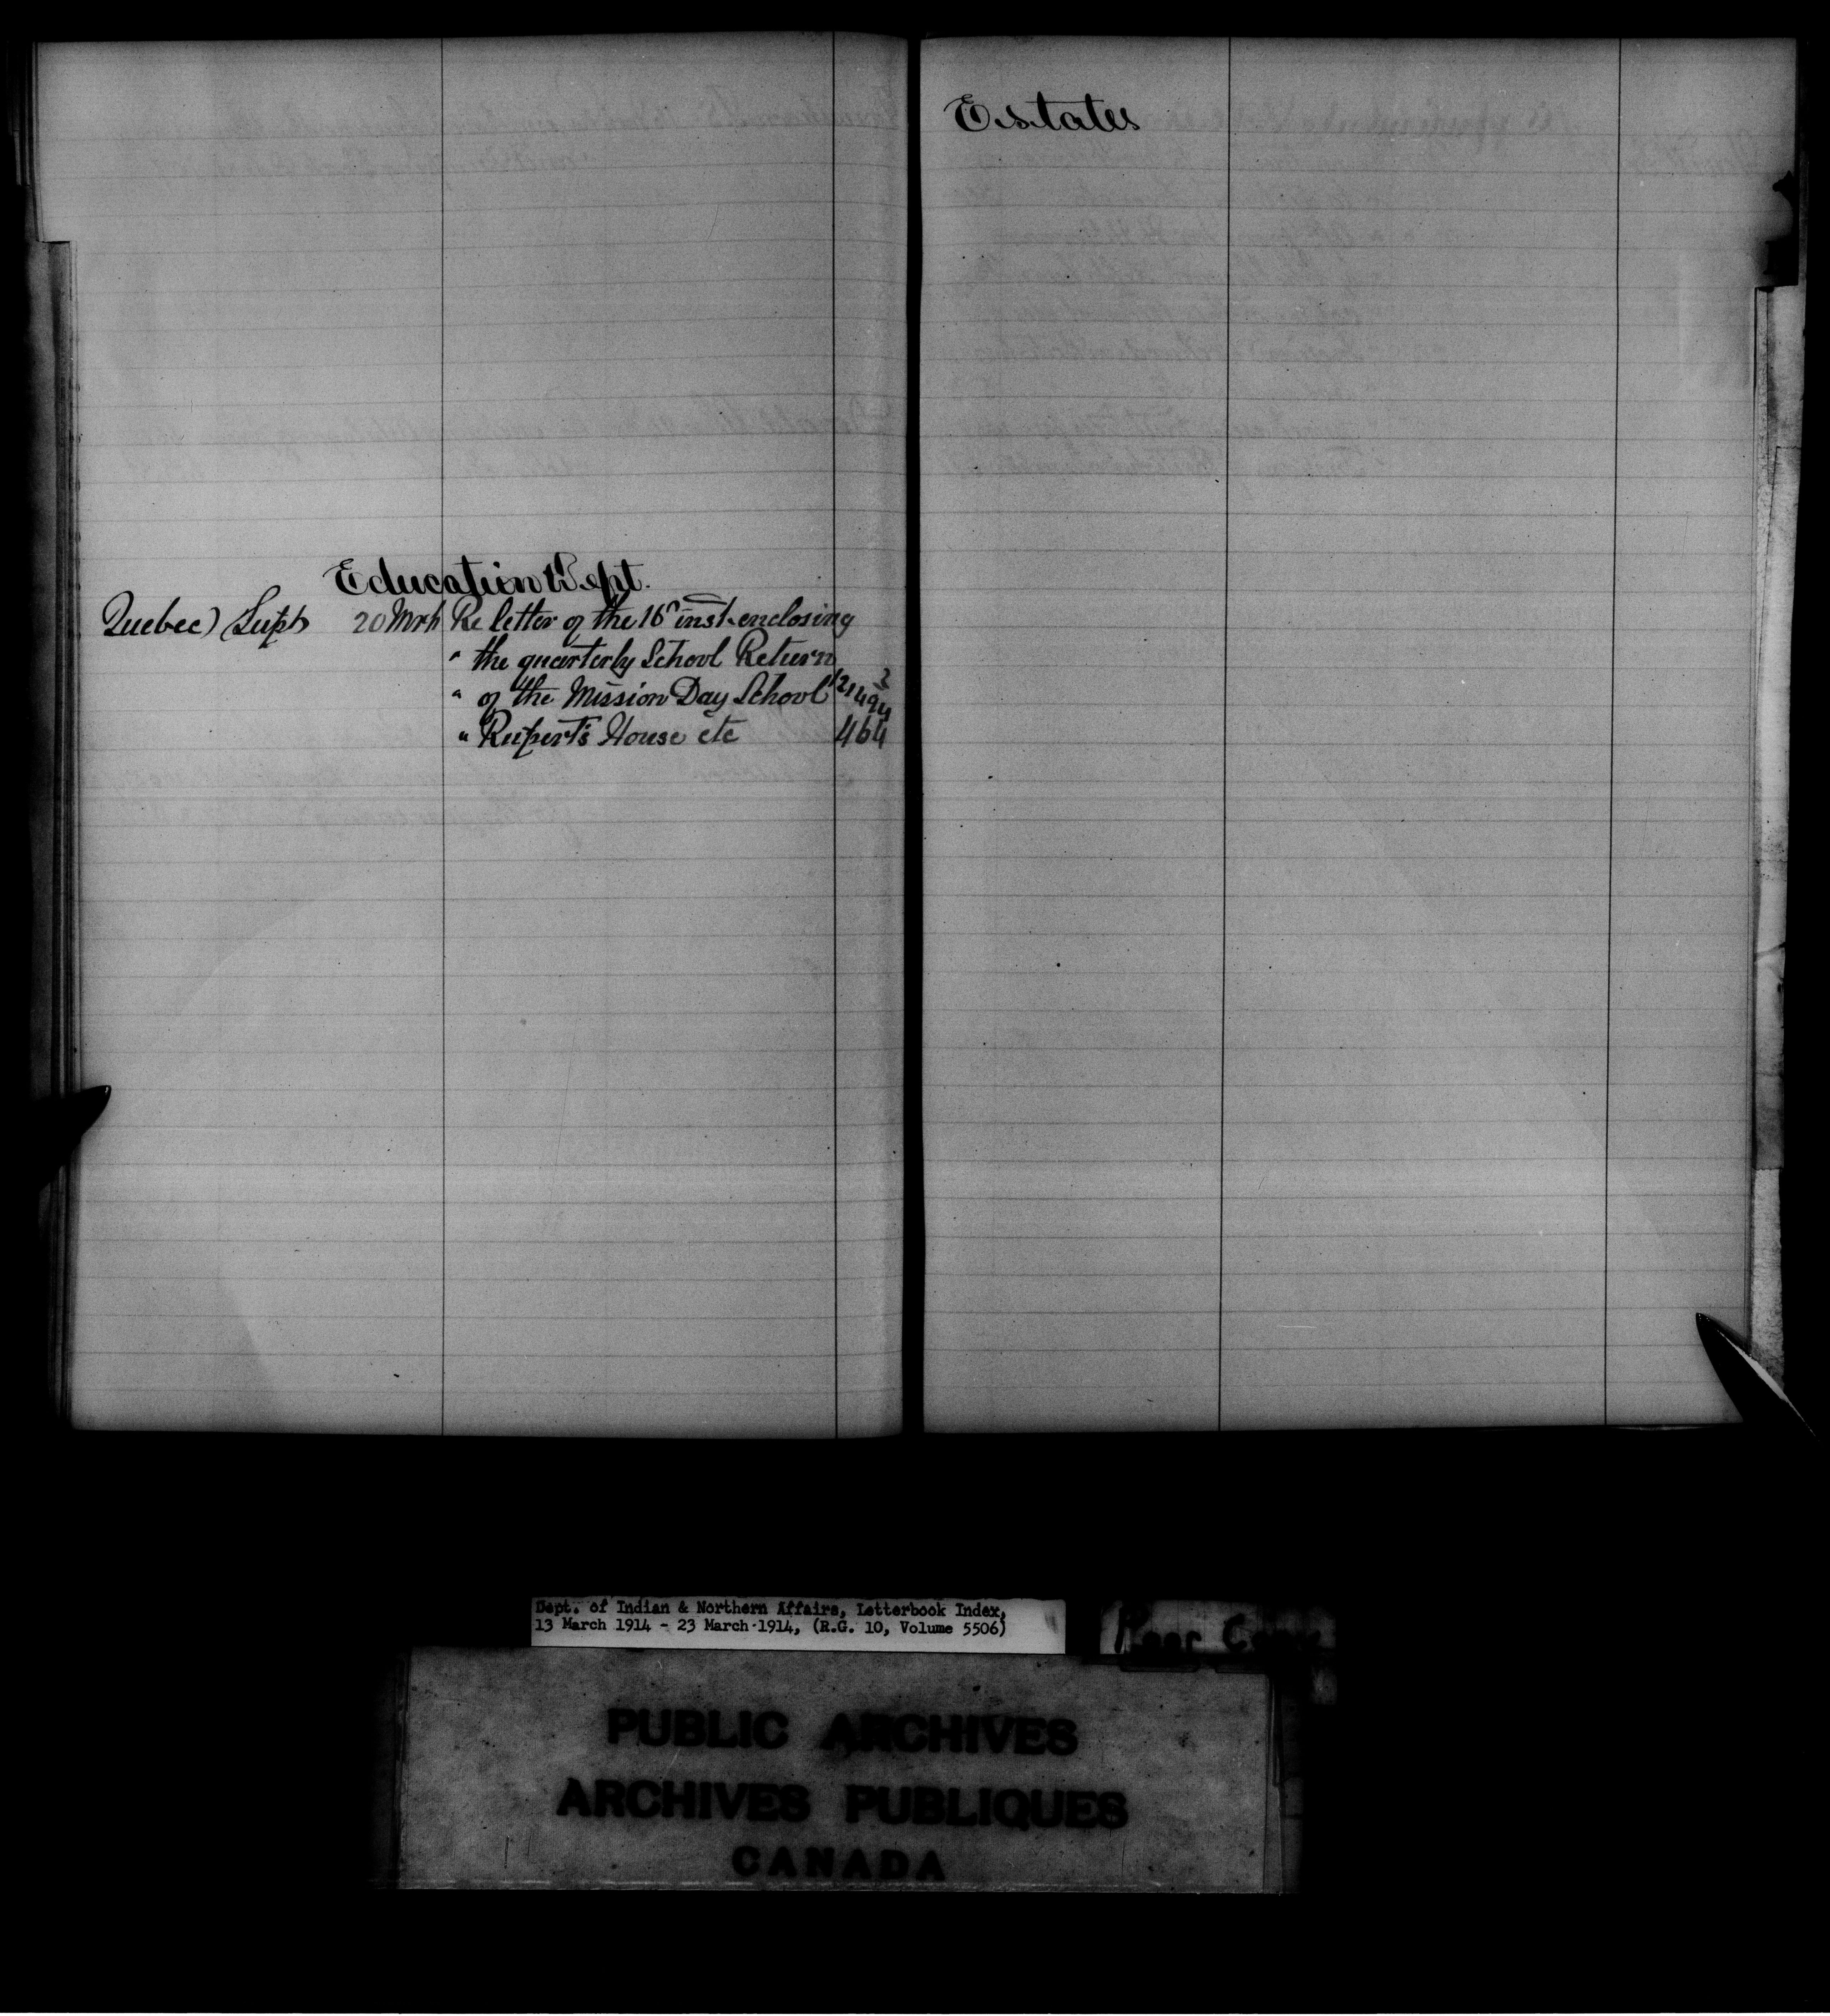 Education Dept.
Quebec) Supt 20 Mrh Re letter of the 16th inst. enclosing
" the quarterly School Return
" of the Mission Day School
" Rupert's House etc 464
Estates
Dept. of Indian & Northern Affairs, Letterbook Index,
13 March 1914 - 23 March 1914, (R.G. 10, Volume 5506)
Poor Copy
PUBLIC ARCHIVES
ARCHIVES PUBLIQUES
CANADA